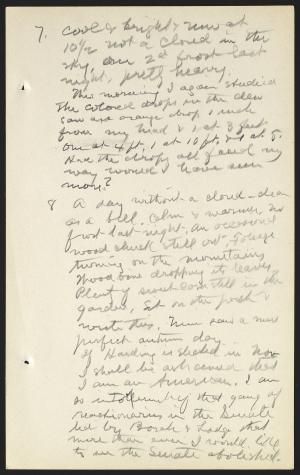 7. Cool & bright & now at
10½ not a cloud in the
sky, our 2d frost last
night, pretty heavy.
This morning I again studied
the colored drops in the dew
saw one orange drop 1 inch
from my head & 1 at 3 feet
one at 4 ft, 1 at 10 ft, & 1 at 5.
Had the drops all faced my
way would I have seen
more?
8 A day without a cloud - clear
as a bell. Calm & warmer, no
frost last night. An occasional
wood chuck still out. Foliage
turning on the mountains
Woodbine dropping its leaves,
Plenty of sweet corn still in the
garden. Sit on the porch &
write this. Never saw a more
perfect autumn day.
If Harding is elected in Nov
I shall be ashamed that
I am an American. I am
so intolerant of that gang of
reactionaries in the Senate
led by Borah & Lodge that
more than ever I would like
to see the Senate abolished.